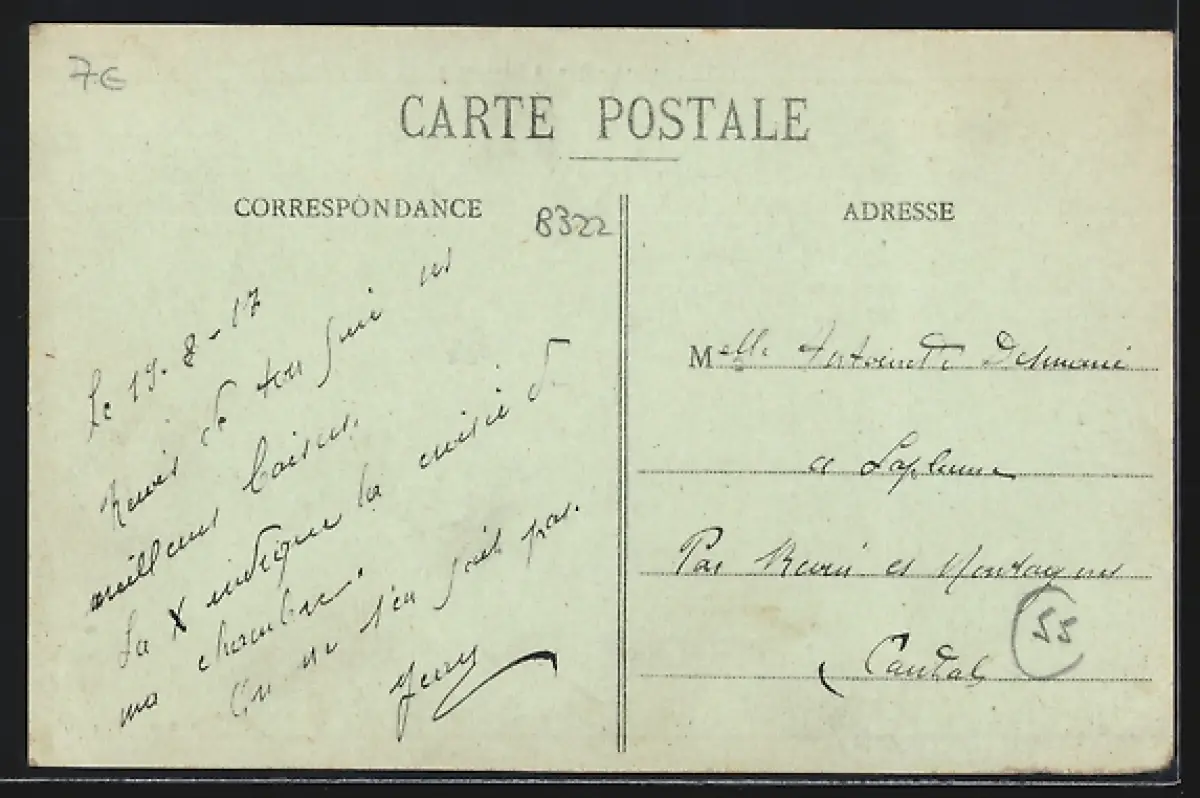 7€
CARTE POSTALE
CORRESPONDANCE
B322
ADRESSE
Le 19-8-17
Reçois de ton
meilleurs baisers.
La X indique la croisée de
ma chambre.
On ne s'en fait pas.
Melle Antoinette
a Laplume
Par et Montagnes
Cantal
55